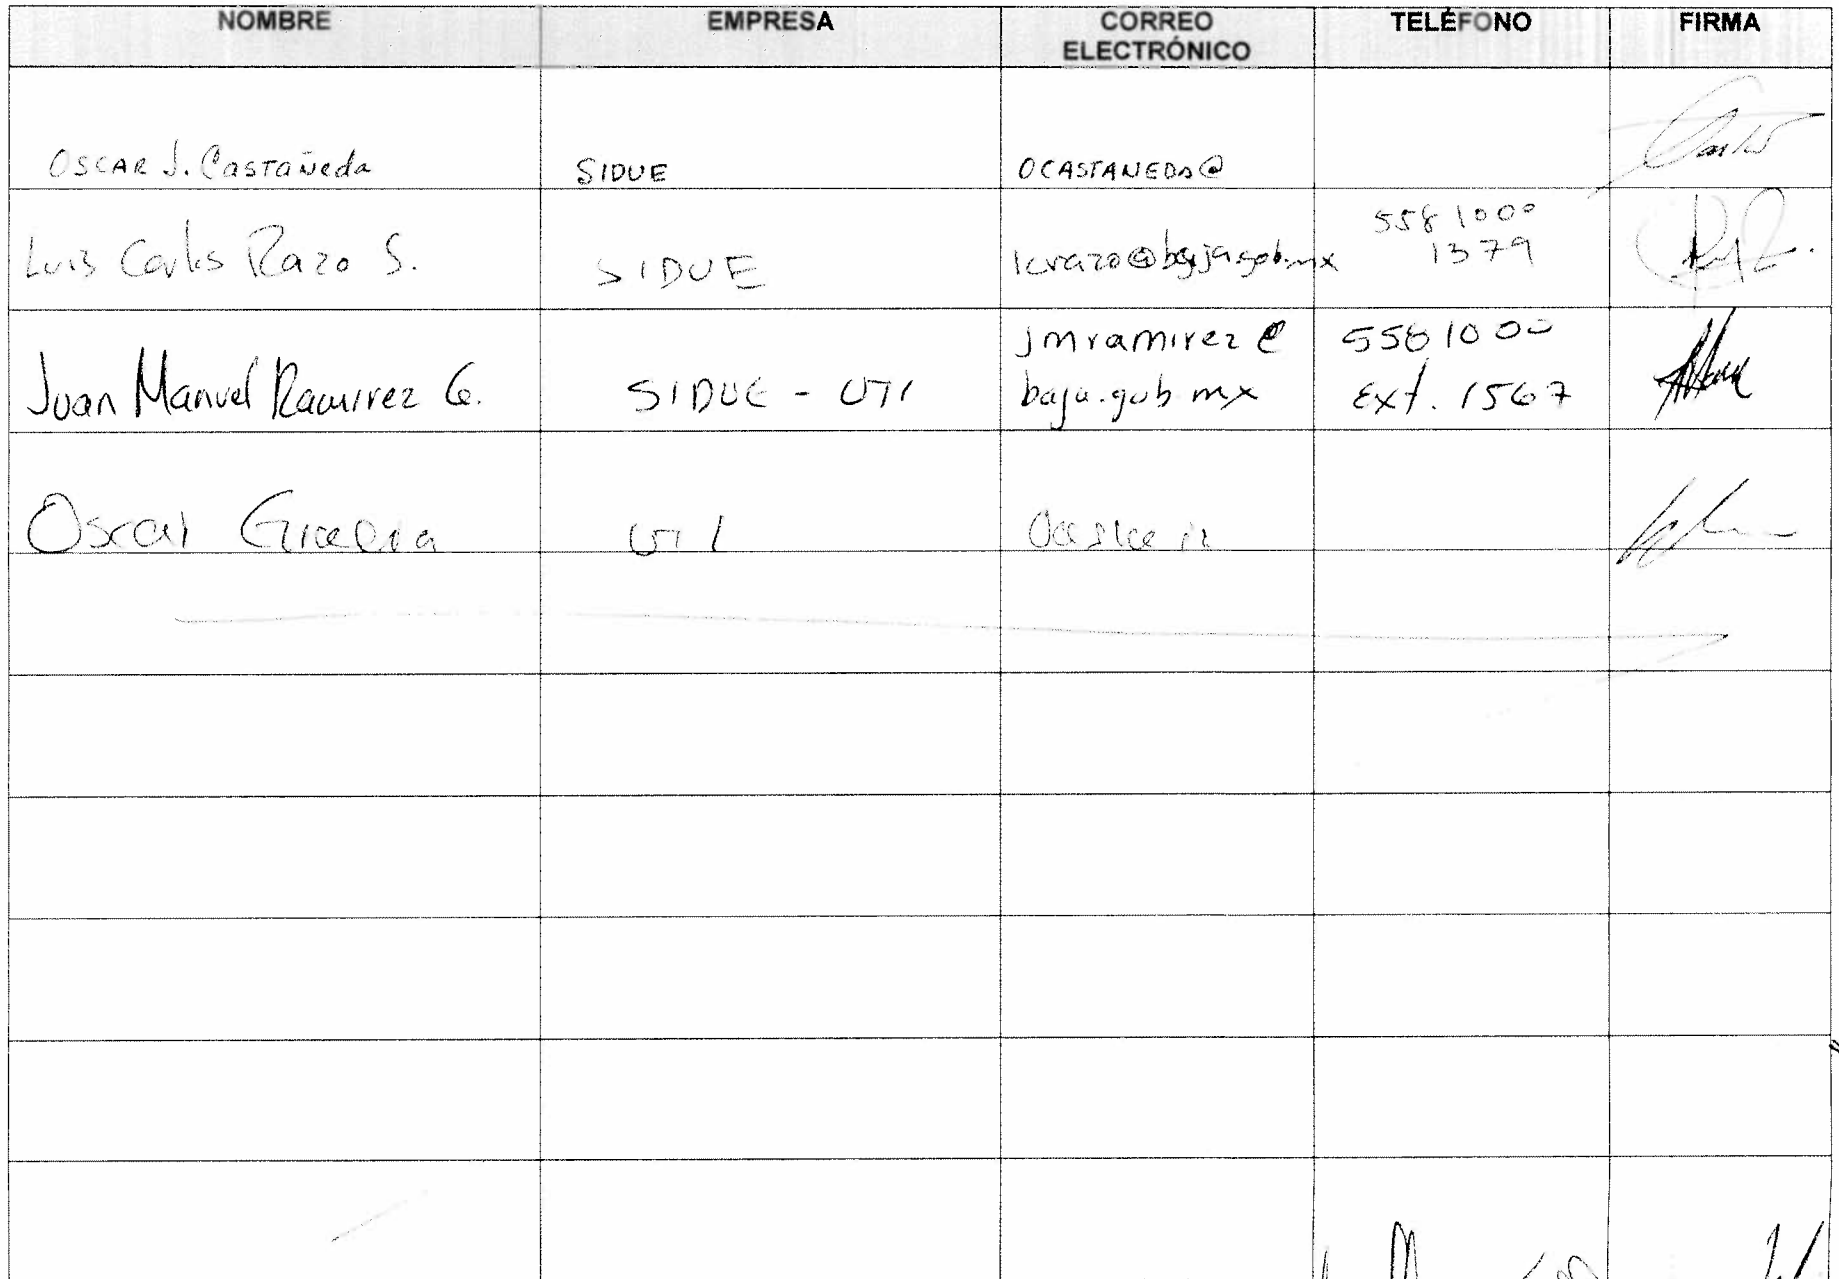 NOMBRE EMPRESA CORREO ELECTRÓNICO TELÉFONO FIRMA
OSCAR J. Castañeda SIDUE OCASTANEDA@
Luis Carlos Razo S. SIDUE lcrazo@baja.gob.mx 558 1000 1379
Juan Manuel Ramirez G. SIDUE - UTI jmramirez@ 558 10 00
baja.gob.mx Ext. 1567
Oscar UTI